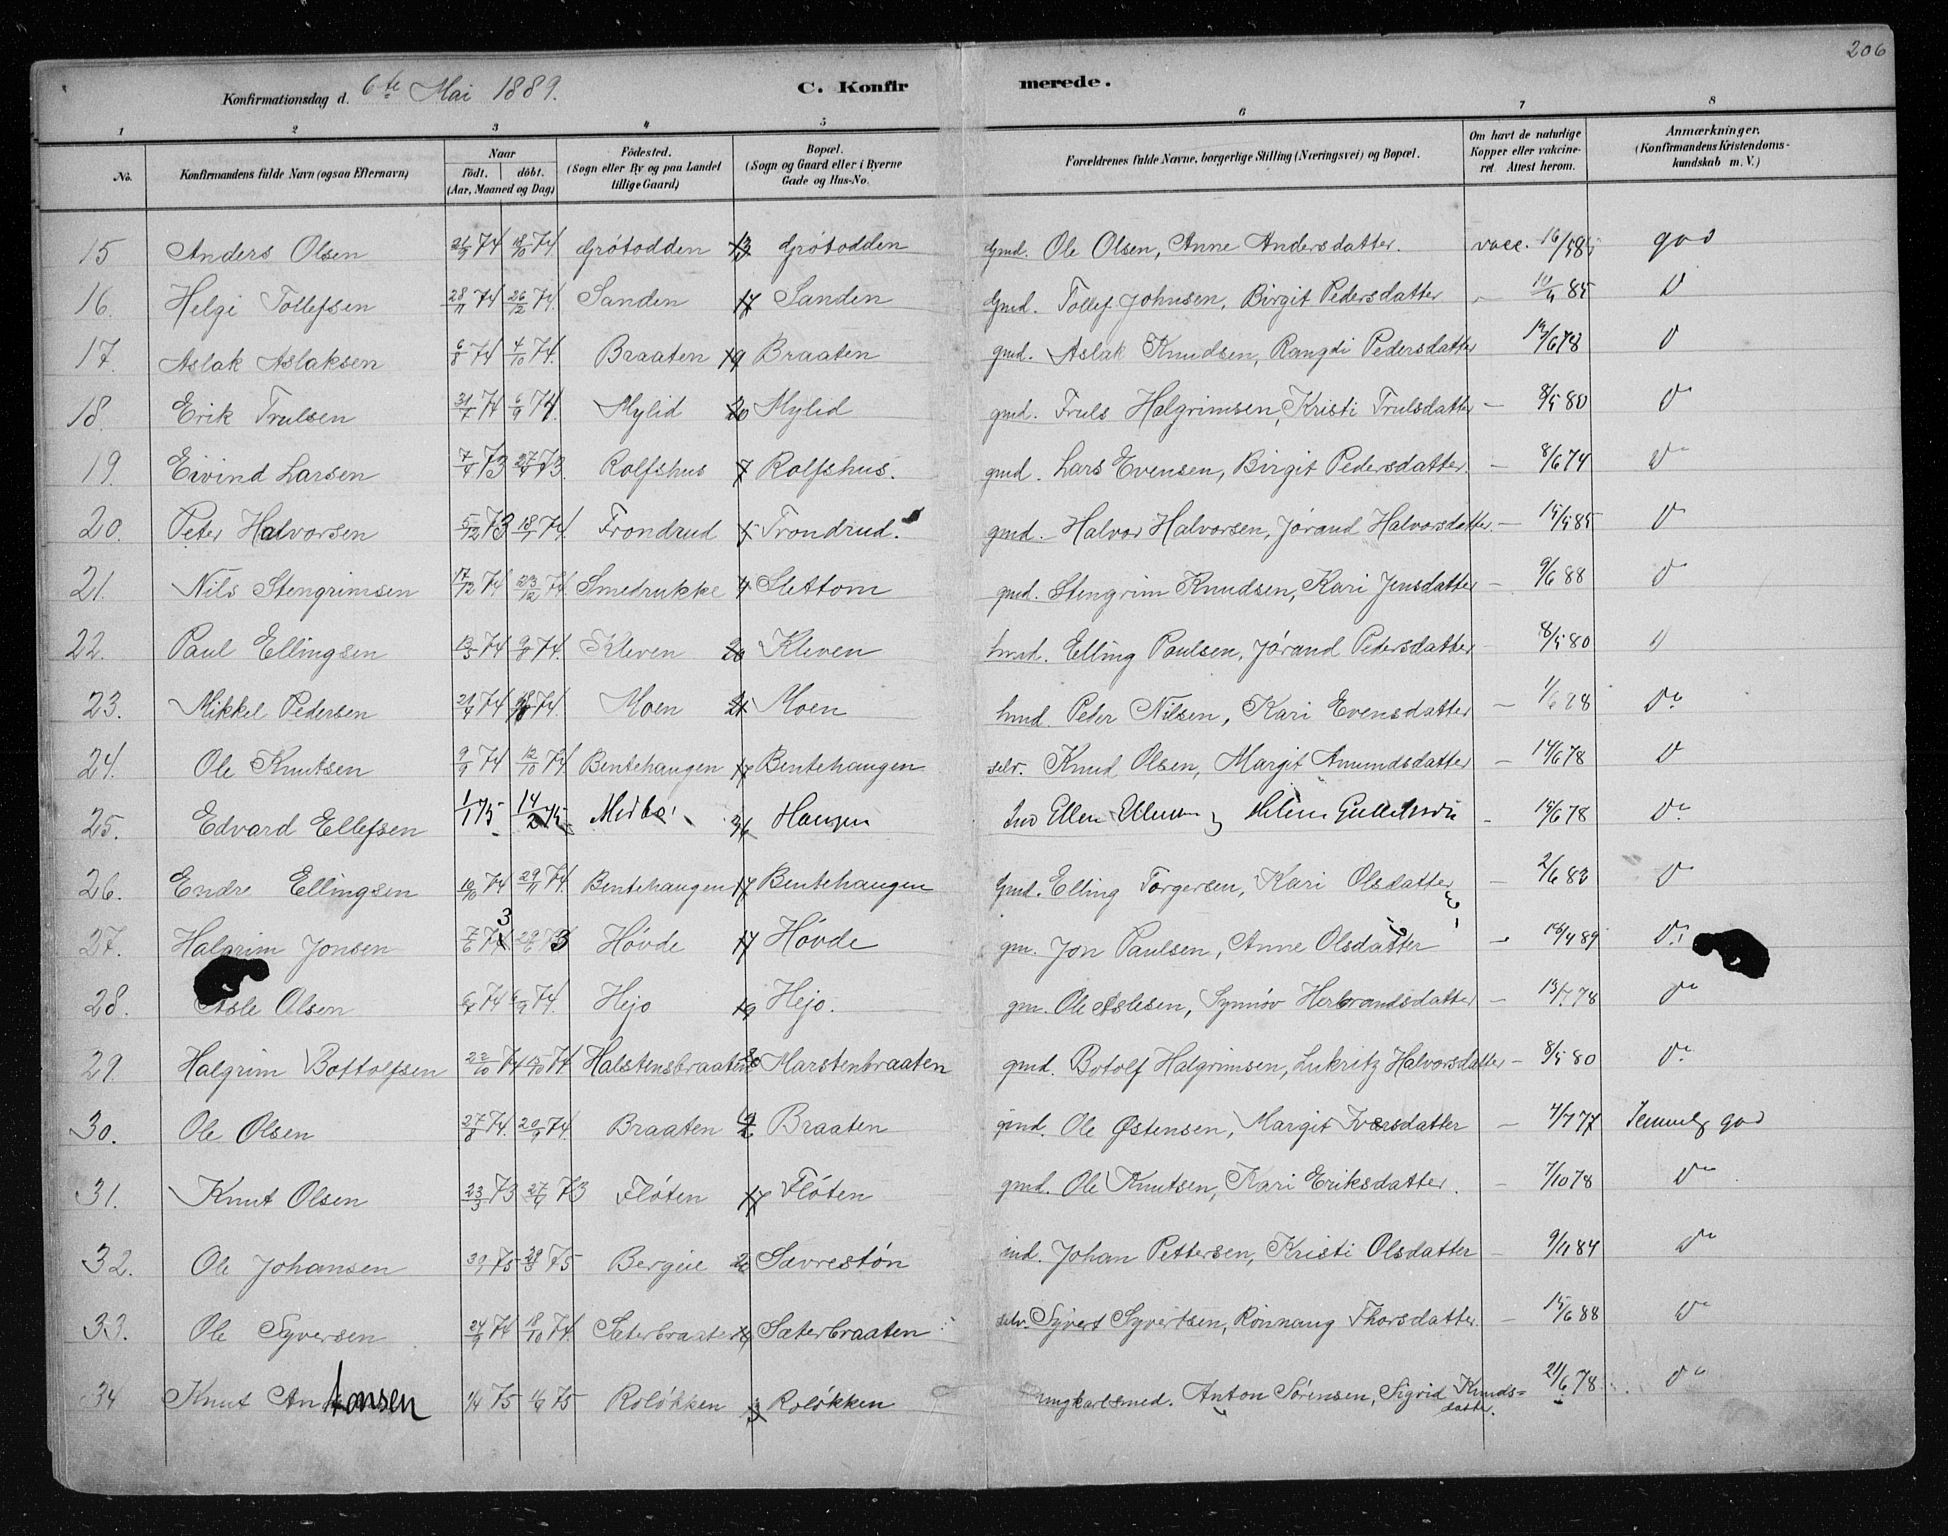 206
Konfirmationsdag d. 6te Mai 1889. C. Konfirmerede.
1 2 3 4 5 6 7 8
No. Konfirmandens fulde Navn (ogsaa Efternavn) Naar födt. döbt. (Aar, Maaned og Dag) Födested. (Sogn eller By og paa Landet tillige Gaard) Bopæl. (Sogn og Gaard eller i Byerne Gade og Hus-No. Forældrenes fulde Navne, borgerlige Stilling (Næringsvei) og Bopæl. Om havt de naturlige Kopper eller vakcineret. Attest herom. Anmærkninger. (Konfirmandens Kristendomskundskab m. V.)
15 Anders Olsen 21/9 74 18/10 74 Grötodden 13 Grötodden Gmd. Ole Olsen, Anne Andersdatter. vacc. 16/5 85 god
16. Helgi Tollefsen 28/11 74 26/12 74. Sanden 17 Sanden Gmd. Tollef Johnsen, Birgit Pedersdatter 85 D
17. Aslak Aslaksen 6/8 74 4/10 74. Braaten 19 Braaten gmd. Aslak Knudsen, Rangdi Pedersdatter 12/6 78 D
18. Erik Trulsen 31/7 74 6/9 74. Mylid 20 Mylid gmd. Truls Halgrimsen, Kristi Trulsdatter — 8/5 80 Do
19. Eivind Larsen 73 73. Rolfshus 7 Rolfshus. gmd. Lars Evensen, Birgit Pedersdatter — 8/6 74 Do
20. Peter Halvorsen 5/12 73 18/1 74. Trondrud 5 Trondrud. gmd. Halvor Halvorsen, Jörand Halvorsdatter. — 15/5 85 D
21. Nils Stengrimsen 17/12 74 23/12 74. Smedrukke 4 Slettom gmd. Stengrim Knudsen, Kari Jensdatter — 9/6 88 D
22. Paul Ellingsen 13/5 74 74. Kleven 20 Kleven hmd. Elling Paulsen, Jörand Pedersdatter 8/5 80 D
23. Mikkel Pedersen 74 74. Moen 21 Moen hmd. Peder Nilsen, Kari Evensdatter — 1/6 88 Do
24. Ole Knutsen 9/9 74 12/10 74 Bentehaugen 17 Bentehaugen selv. Knud Olsen, Margit Amundsdatter — 14/6 78 D
25. Edvard Ellefsen 1/1 75 14/2 75. 36 Haugen — 15/6 78 Do
26. Endre Ellingsen 19/10 74 29/11 74. Bentehaugen 17 Bentehaugen Gmd. Elling Torgersen, Kari Olsdatter — 2/6 83 Do
27. Halgrim Jonsen 7/6 73 29/6 73 Hövde 17 Hövde gm. Jon Paulsen, Anne Olsdatter 4 89 Do
28. Asle Olsen 6/7 74 6/9 74. Hejo 19 Hejo. gm. Ole Aslesen, Synnöv Herbrandsdatter — 13/7 78 Do
29. Halgrim Bottolfsen 22/10 74 74 Halstensbraaten Marstenbraaten gmd. Botolf Halgrimsen, Lukritz Halvorsdatter — 8/5 80 Do
30. Ole Olsen 27/8 74. 20/9 74. Braaten Braaten gmd. Ole Østensen, Margit Iversdatter — 4/7 77 Temmelig god
31. Knut Olsen 23/3 73 27/4 73 Flöten 17 Flöten gmd. Ole Knutsen, Kari Eriksdatter. — 7/10 78 Do
32. Ole Johansen 75 28/3 75 Bergeie Sævrestön ind. Johan Pettersen, Kristi Olsdatter — 9/11 84 Do
33. Ole Syversen 24/9 74 18/10 74. Sæterbraaten Sæterbraaten selv. Syvert Syvertsen, Rönnaug Thorsdatter. — 15/6 88 Do
34 Knut Antonsen 1/4 75 75 Rolökken 3 Rolökken ungkarlsmed. Anton Sörensen, Sigrid Knuds=datter. 21/6 78 Do